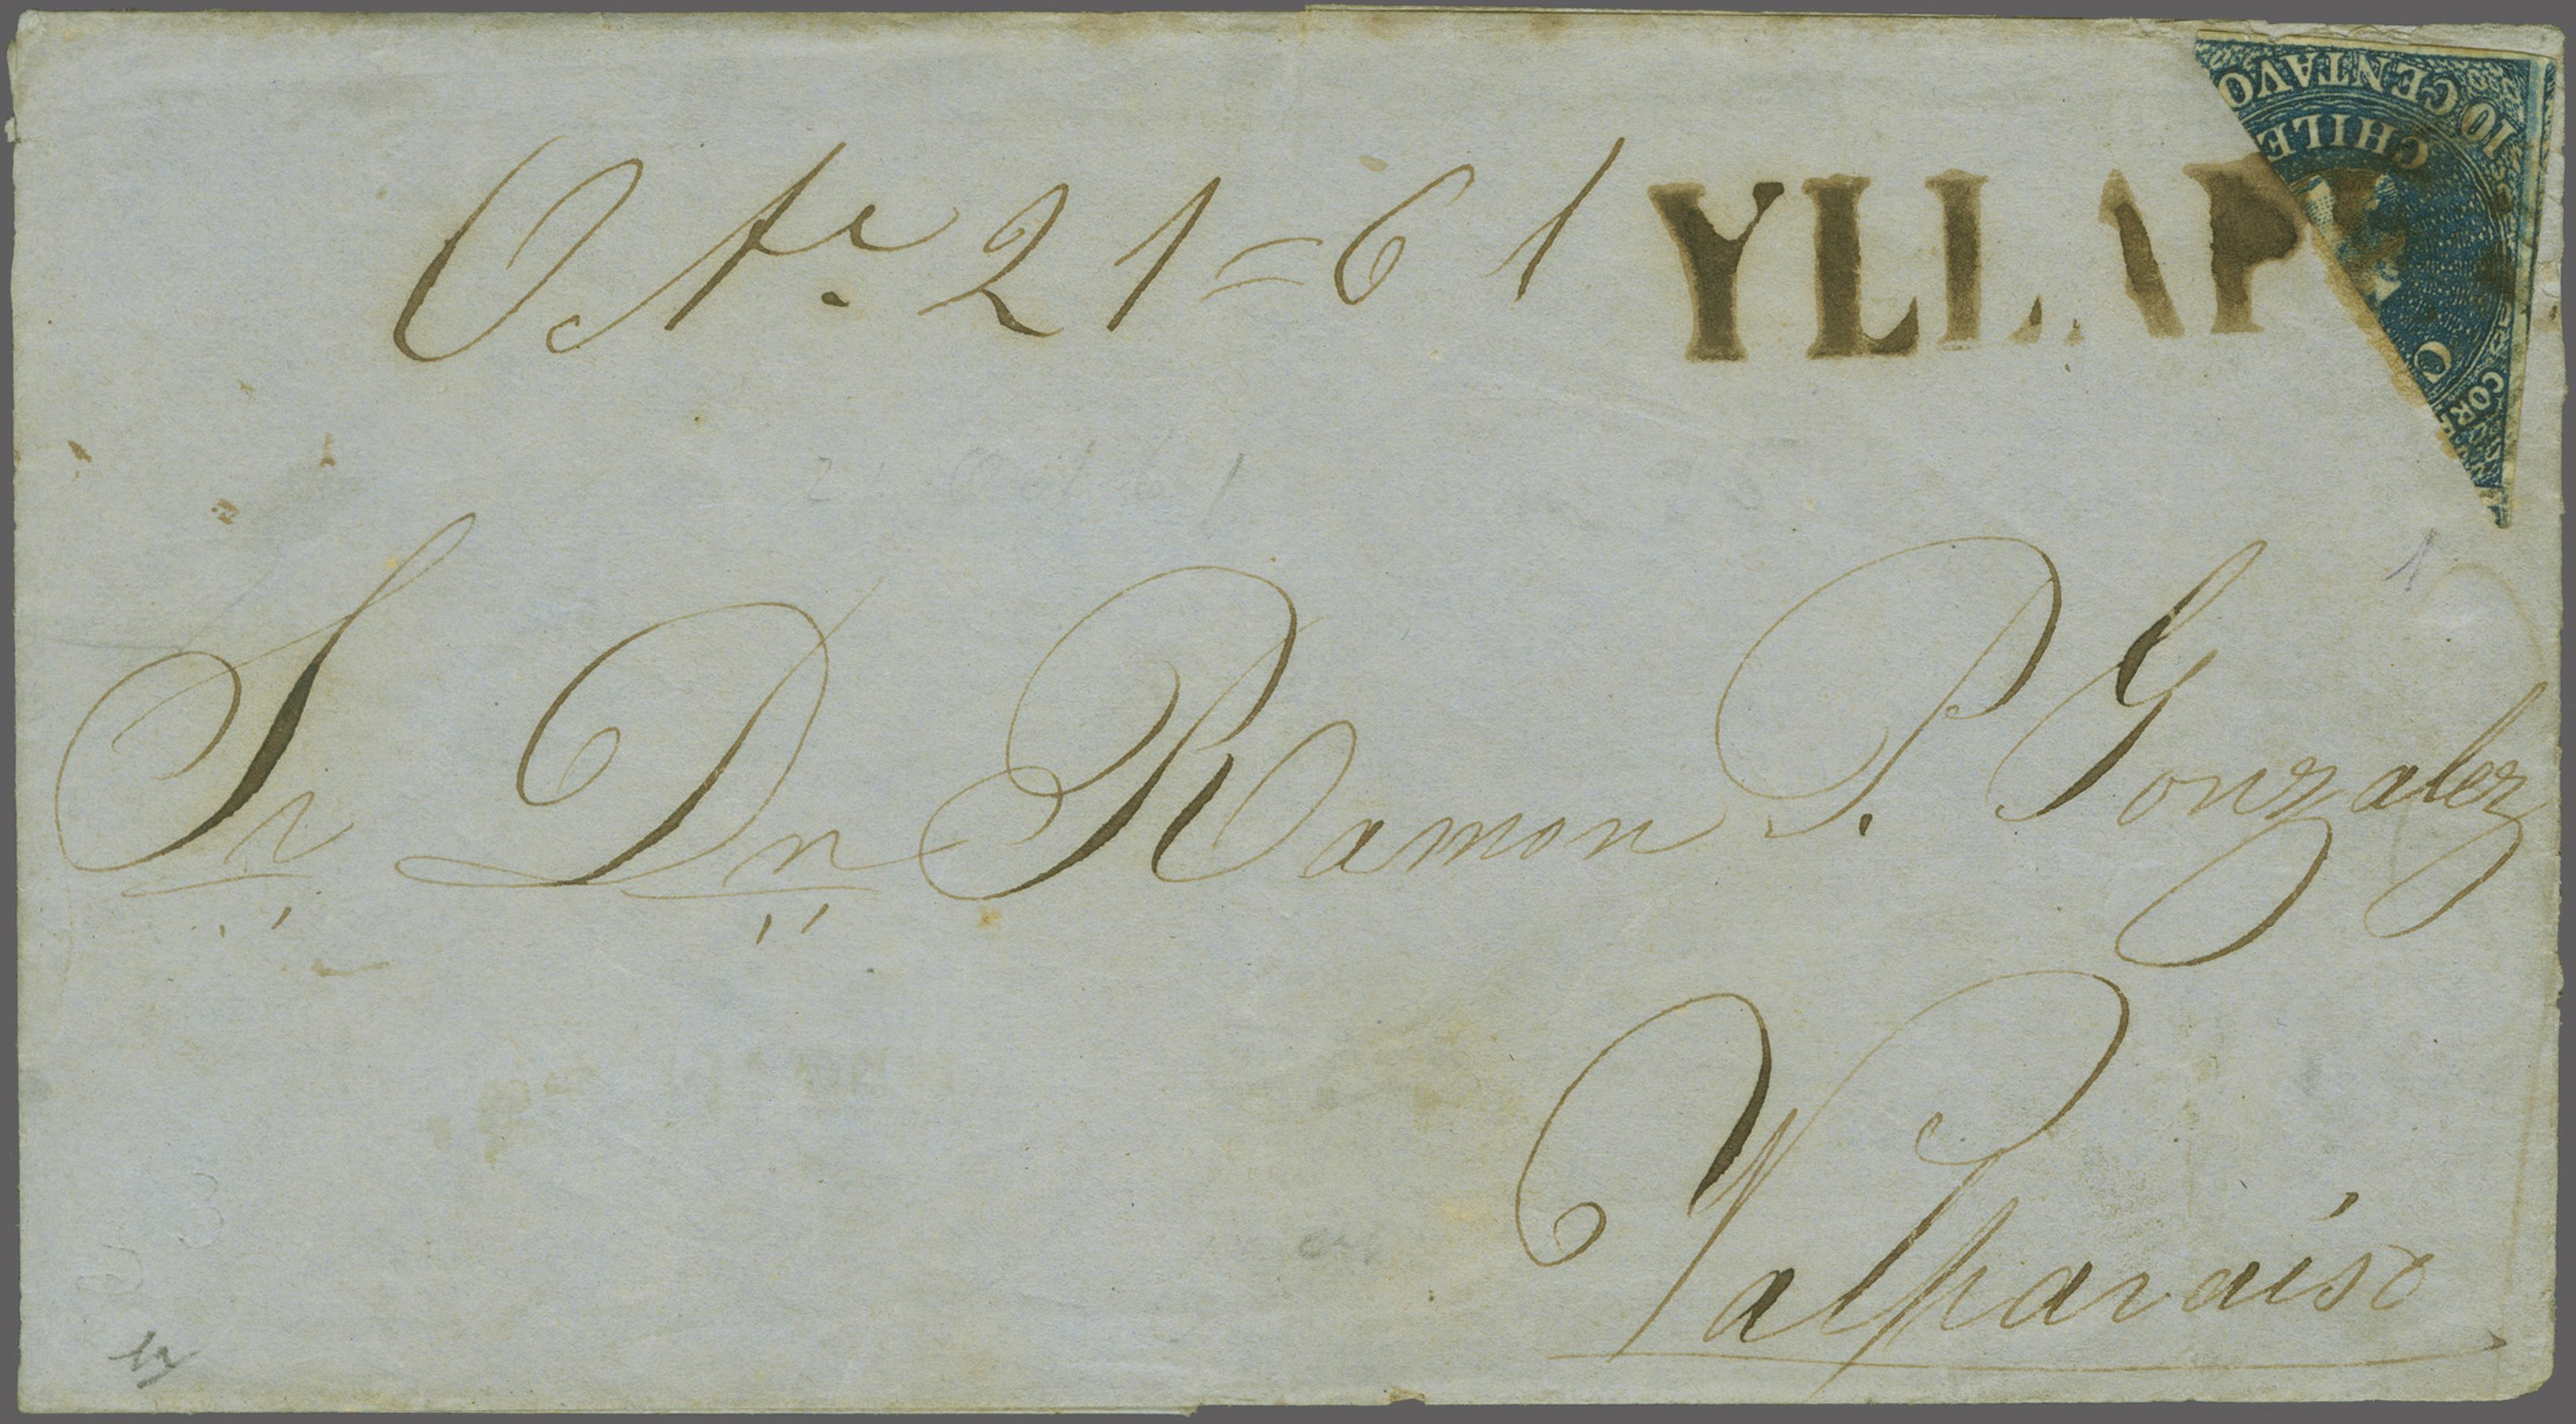 Octe. 21=61
YLLAP
10 CENTAVO
CHILE
C
COR
Sr Dn Ramon P. Gonzalez
Valparaiso